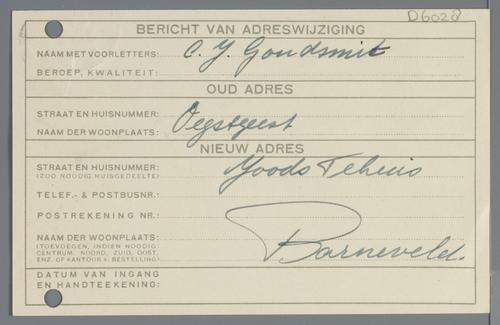 D6028
BERICHT VAN ADRESWIJZIGING
NAAM MET VOORLETTERS: C. J. Goudsmit
BEROEP, KWALITEIT:
OUD ADRES
STRAAT EN HUISNUMMER:
NAAM DER WOONPLAATS: Oegstgeest
NIEUW ADRES
STRAAT EN HUISNUMMER: Joods Tehuis
(ZOO NOODIG HUISGEDEELTE)
TELEF.- & POSTBUSNR.:
POSTREKENING NR.:
NAAM DER WOONPLAATS: Barneveld.
(TOEVOEGEN, INDIEN NOODIG:
CENTRUM, NOORD, ZUID, OOST,
ENZ. OF KANTOOR V. BESTELLING)
DATUM VAN INGANG
EN HANDTEEKENING: